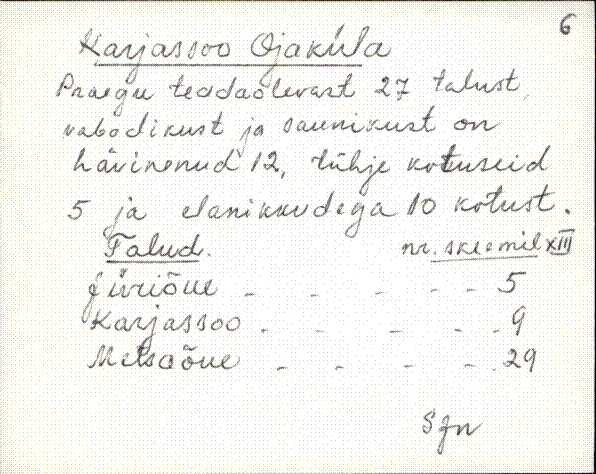 6
Karjassoo Ojaküla
Praegu teadaolevast 27 talust,
vabadikust ja saunikust on
hävinenud 12, tühje kotuseid
5 ja elanikkudega 10 kotust.
Talud. nr. skeemil XIII
Jüriõue - - - - - 5
Karjassoo - - - - - 9
Metsaõue - - - - - 29